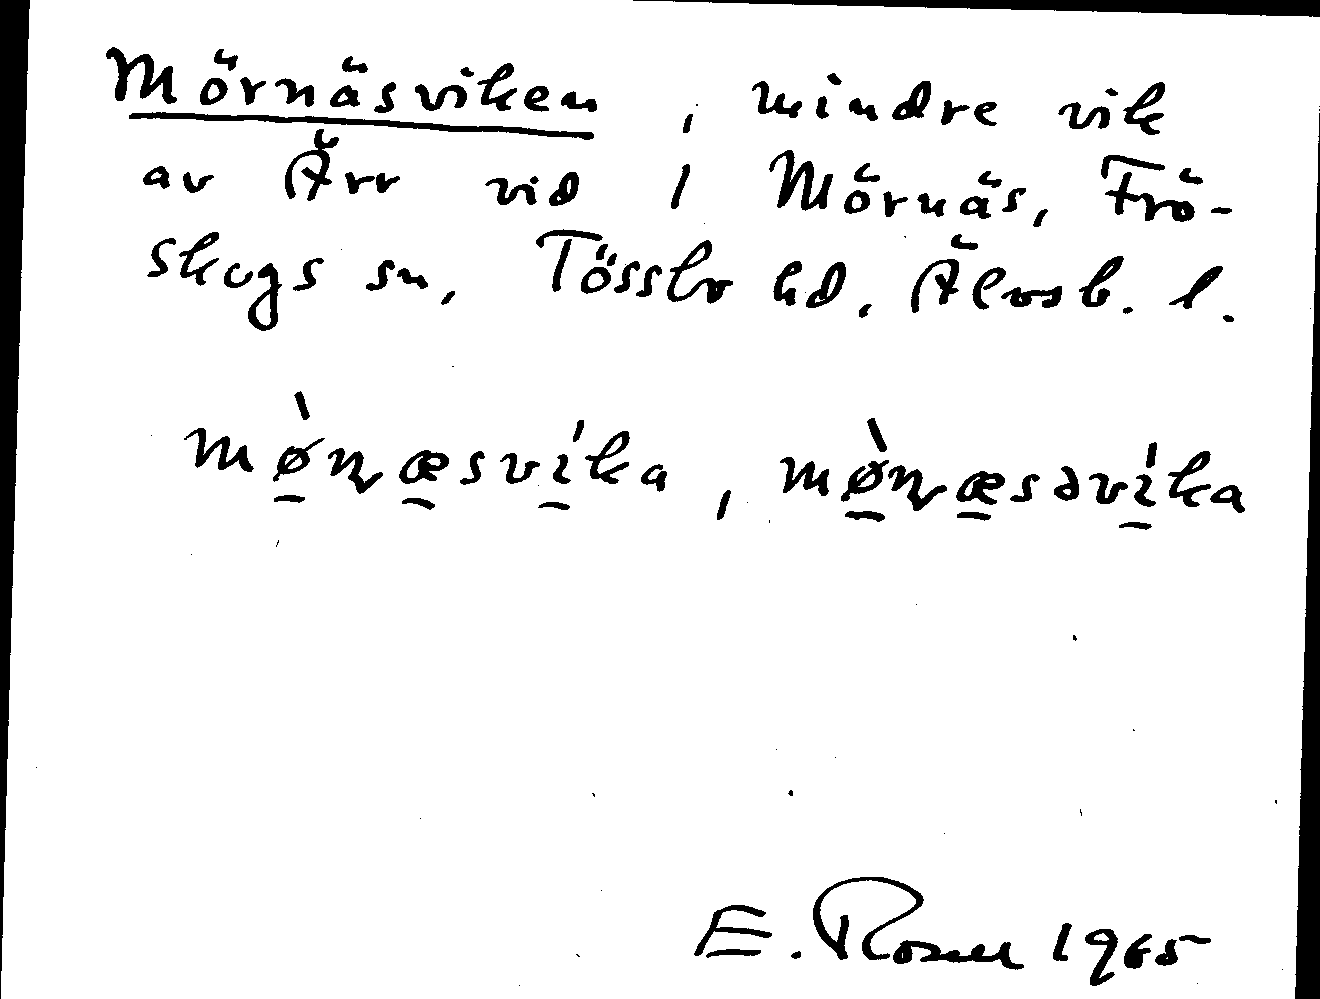 Mörnäsviken, mindre vik
av Ärr vid 1 Mörnäs, Frö-
skogs sn, Tössbo hd, Älvsb. l.
mø̱̀ꞃæ̱sví̱ka, mø̱̀ꞃæ̱səví̱ka
E. Rosell 1965